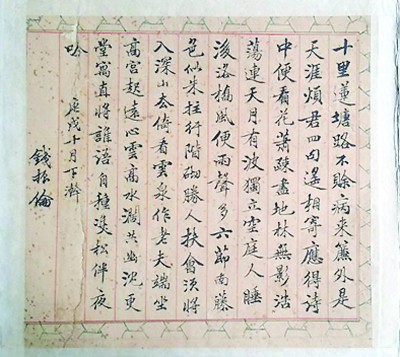 十里蓮塘路不賒病来簾外是
天涯煩君四句遙相寄應得詩
中便看花蕭疎盡地林無影浩
蕩連天月有波獨立空庭人睡
後洛橋風便雨聲多六節南藤
色似朱拄行階砌勝人扶會須將
入深山去倚看雲泉作老夫端坐
高宮起遠心雲高水闊共幽沈更
堂寓直將誰語自種雙松伴夜
吟 庚戌十月下澣
錢振倫